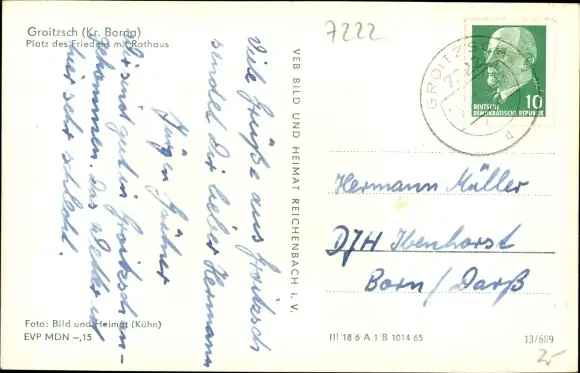 Groitzsch (Kr. Borna)
Platz des Friedens mit Rathaus
7222
Viele Grüße aus Groitzsch
sendet Dir lieber Hermann
Jürgen
Wir sind gut in Groitzsch an-
gekommen. Das Wetter ist
hier sehr schlecht.
VEB BILD UND HEIMAT REICHENBACH i. V.
GROITZSCH
DEUTSCHE
DEMOKRATISCHE REPUBLIK
10
Hermann Müller
DJH Ibenhorst
Born/Darß
Foto: Bild und Heimat (Kühn)
EVP MDN -,15
III 18 6 A 1:B 1014 65
13/689
2,-